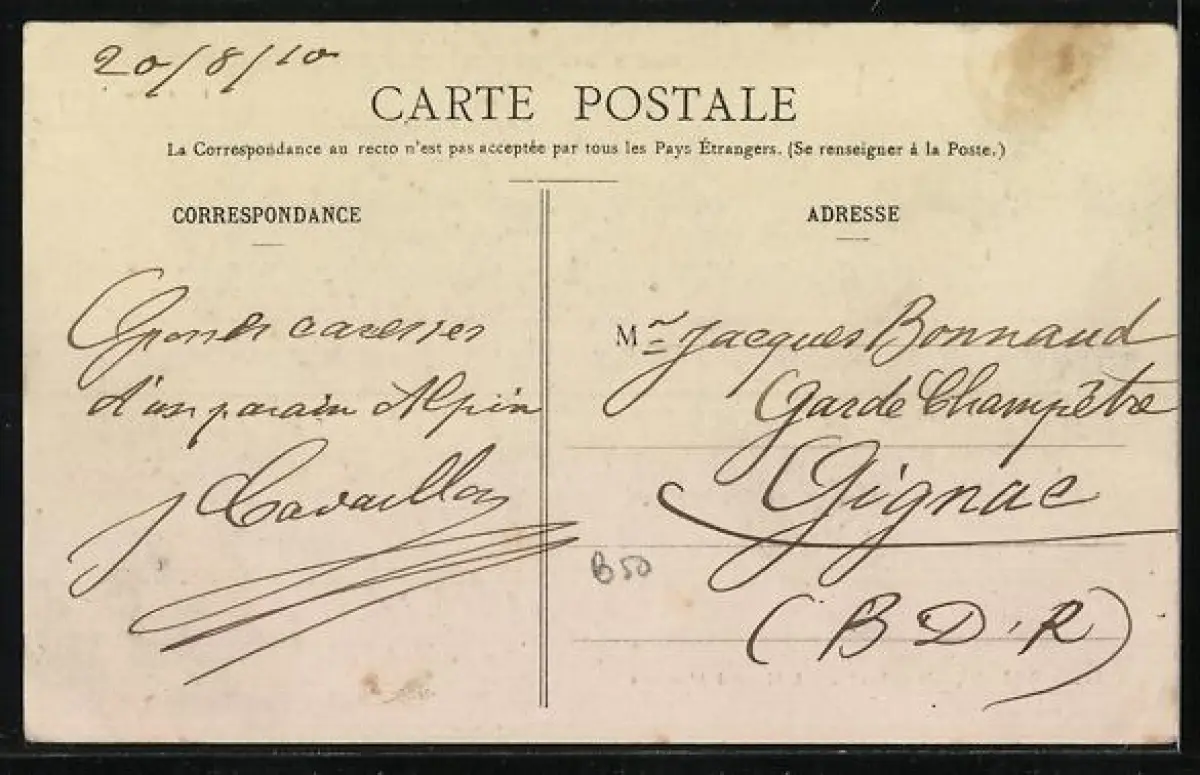 20/8/10
CARTE POSTALE
La Correspondance au recto n'est pas acceptée par tous les Pays Étrangers. (Se renseigner à la Poste.)
CORRESPONDANCE
ADRESSE
Grosses caresses
d'un parain Alpin
J Cavaillon
Mr Jacques Bonnaud
Garde Champêtre
Gignac
(B D. R)
B50